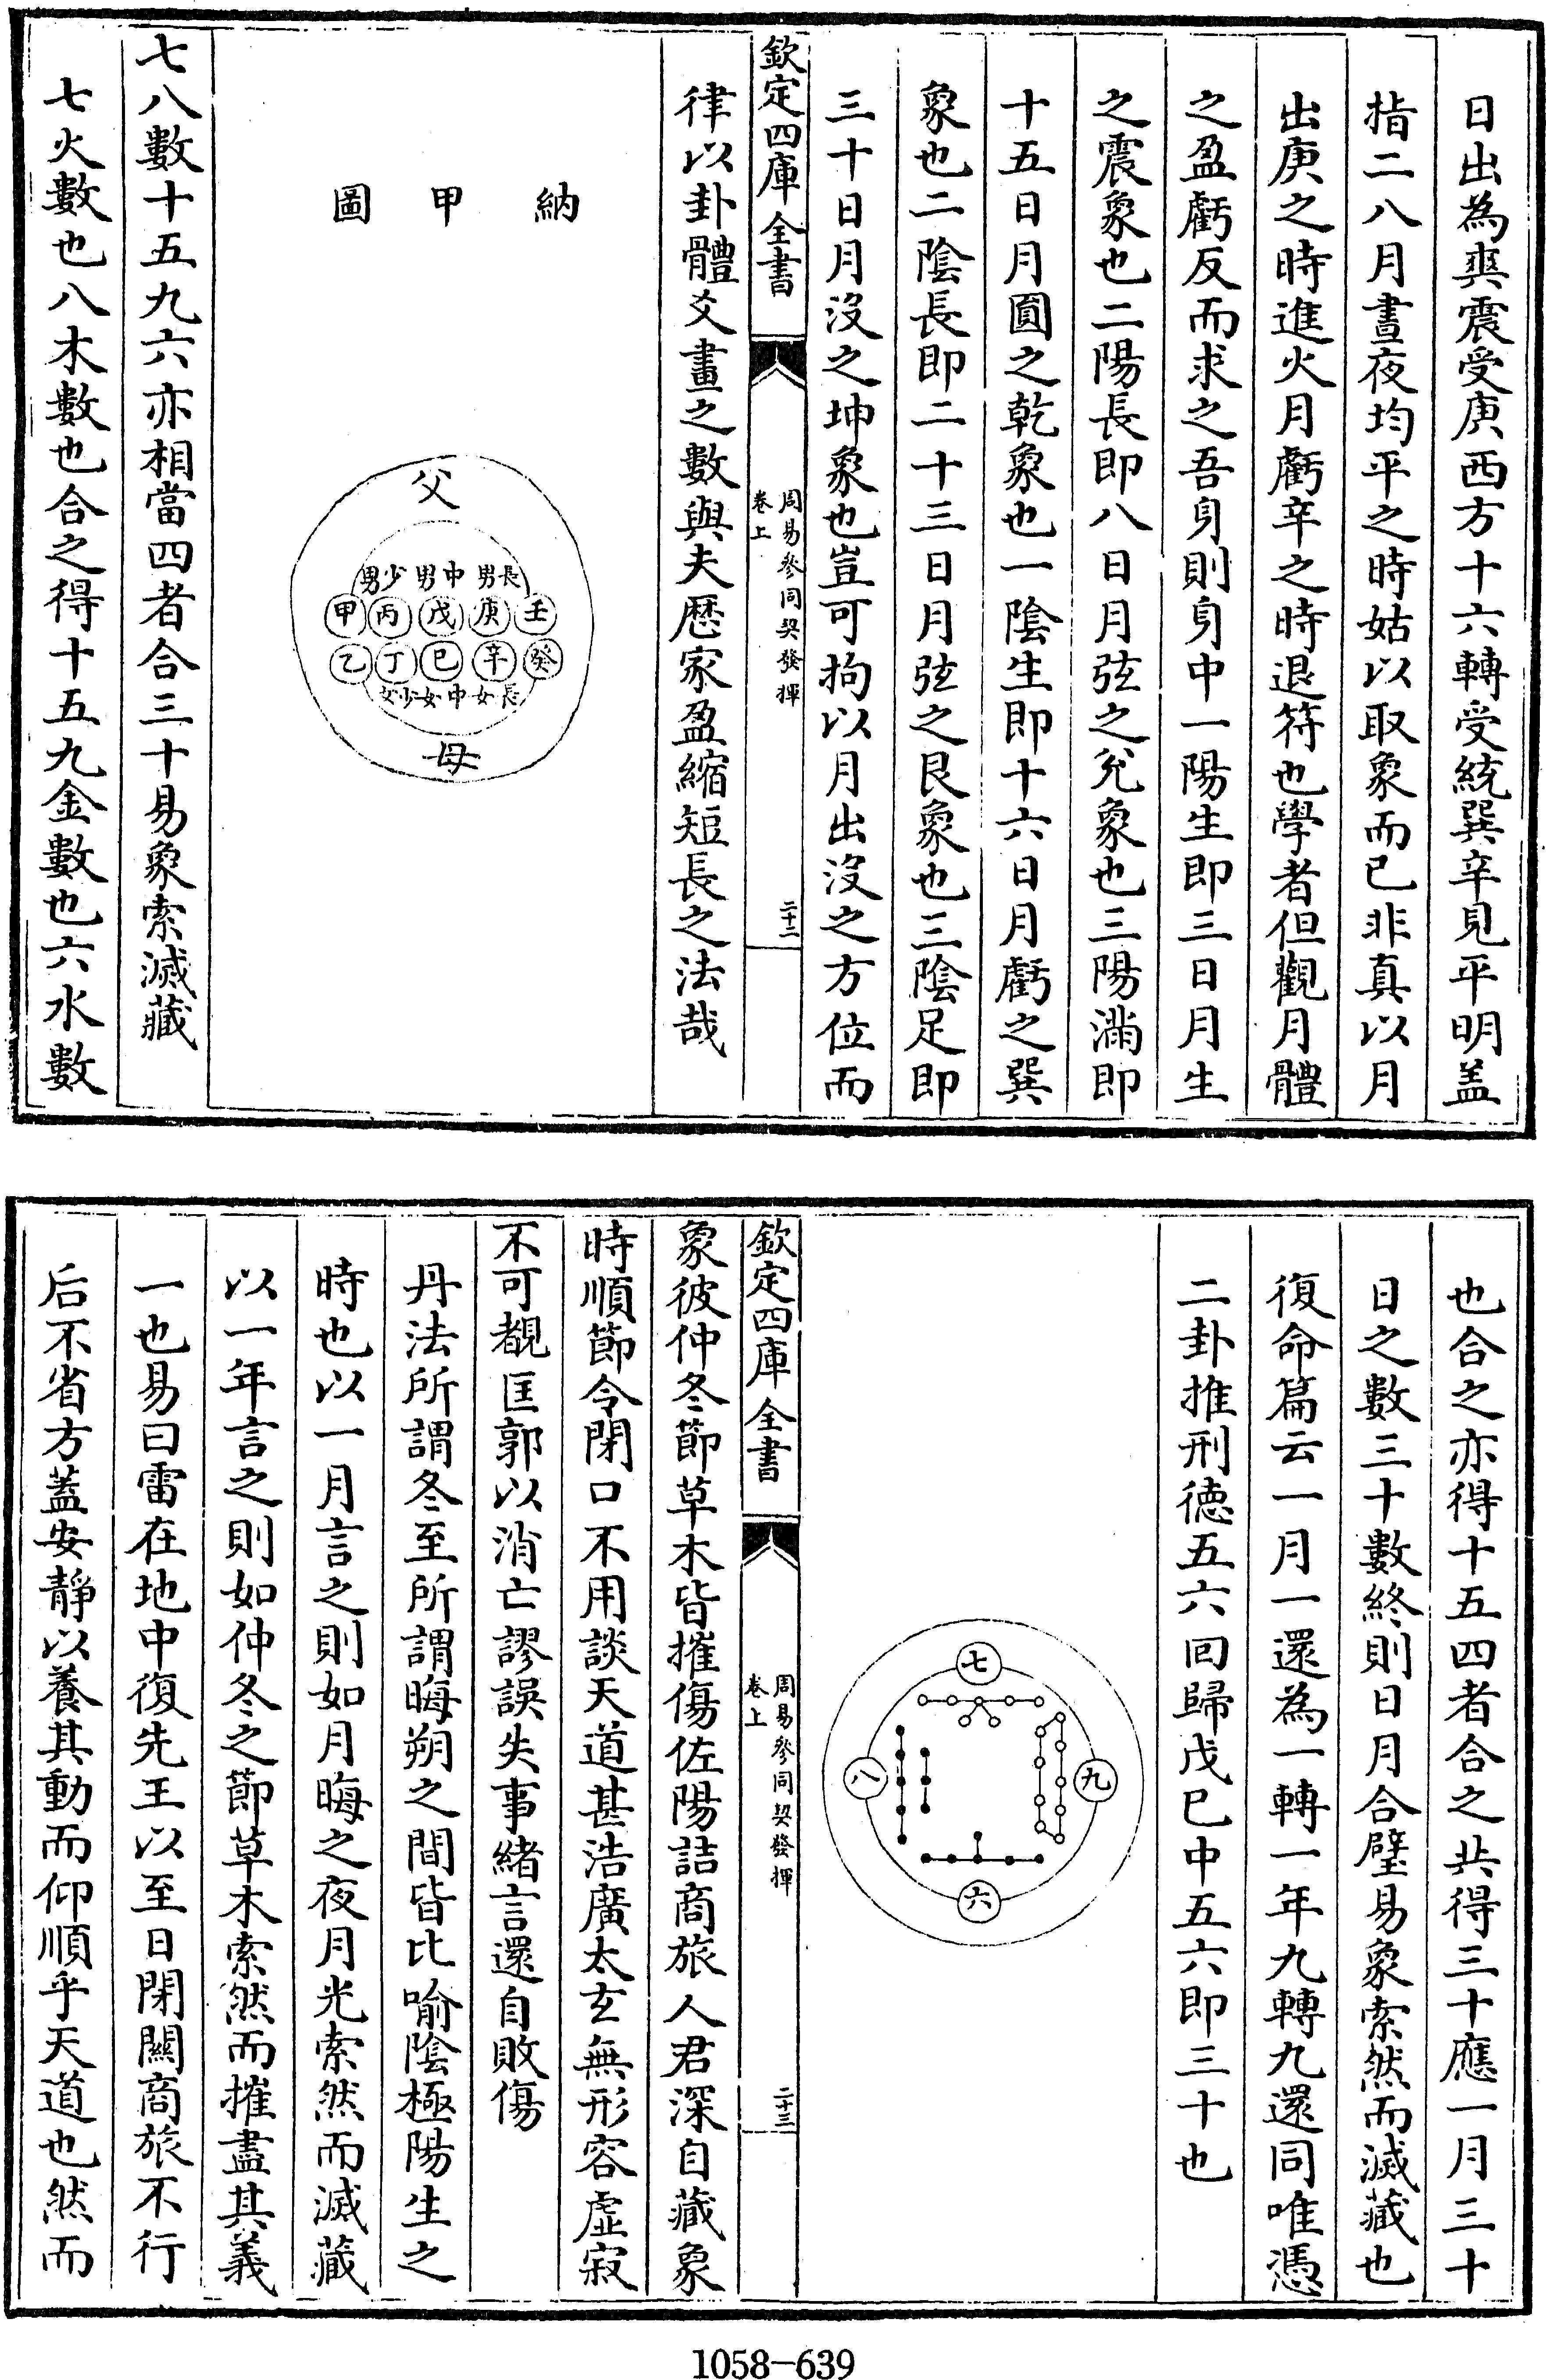 日出為爽震受庚西方十六轉受統巽辛見平明盖
指二八月晝夜均平之時姑以取象而已非真以月
出庚之時進火月虧辛之時退符也學者但觀月體
之盈虧反而求之吾身則身中一陽生即三日月生
之震象也二陽長即八日月弦之兊象也三陽滿即
十五日月圓之乾象也一陰生即十六日月虧之巽
象也二陰長即二十三日月弦之艮象也三陰足即
三十日月沒之坤象也豈可拘以月出沒之方位而
欽定四庫全書
周易參同契發揮
卷上
二十二
律以卦體爻畫之數與夫厯家盈縮短長之法哉
納甲圖
父
長男 中男 少男
壬 庚 戊 丙 甲
癸 辛 已 丁 乙
長女 中女 少女
母
七八數十五九六亦相當四者合三十易象索滅藏
七火數也八木數也合之得十五九金數也六水數
也合之亦得十五四者合之共得三十應一月三十
日之數三十數終則日月合璧易象索然而滅藏也
復命篇云一月一還為一轉一年九轉九還同唯憑
二卦推刑徳五六回歸戊已中五六即三十也
七
九
八
六
欽定四庫全書
周易參同契發揮
卷上
二十三
象彼仲冬節草木皆摧傷佐陽詰商旅人君深自藏象
時順節令閉口不用談天道甚浩廣太玄無形容虛寂
不可覩匡郭以消亡謬誤失事緒言還自敗傷
丹法所謂冬至所謂晦朔之間皆比喻陰極陽生之
時也以一月言之則如月晦之夜月光索然而滅藏
以一年言之則如仲冬之節草木索然而摧盡其義
一也易曰雷在地中復先王以至日閉關商旅不行
后不省方蓋安靜以養其動而仰順乎天道也然而
1058-639